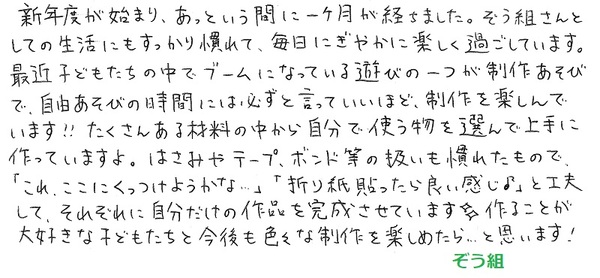 新年度が始まり、あっという間に一ヶ月が経ちました。ぞう組さんと
しての生活にもすっかり慣れて、毎日にぎやかに楽しく過ごしています。
最近子どもたちの中でブームになっている遊びの一つが制作あそび
で、自由あそびの時間には必ずと言っていいほど、制作を楽しんで
います!! たくさんある材料の中から自分で使う物を選んで上手に
作っていますよ。はさみやテープ、ボンド等の扱いも慣れたもので、
「これ、ここにくっつけようかな…」「折り紙貼ったら良い感じ♪」と工夫
して、それぞれに自分だけの作品を完成させています 作ることが
大好きな子どもたちと今後も色々な制作を楽しめたら…と思います!
ぞう組